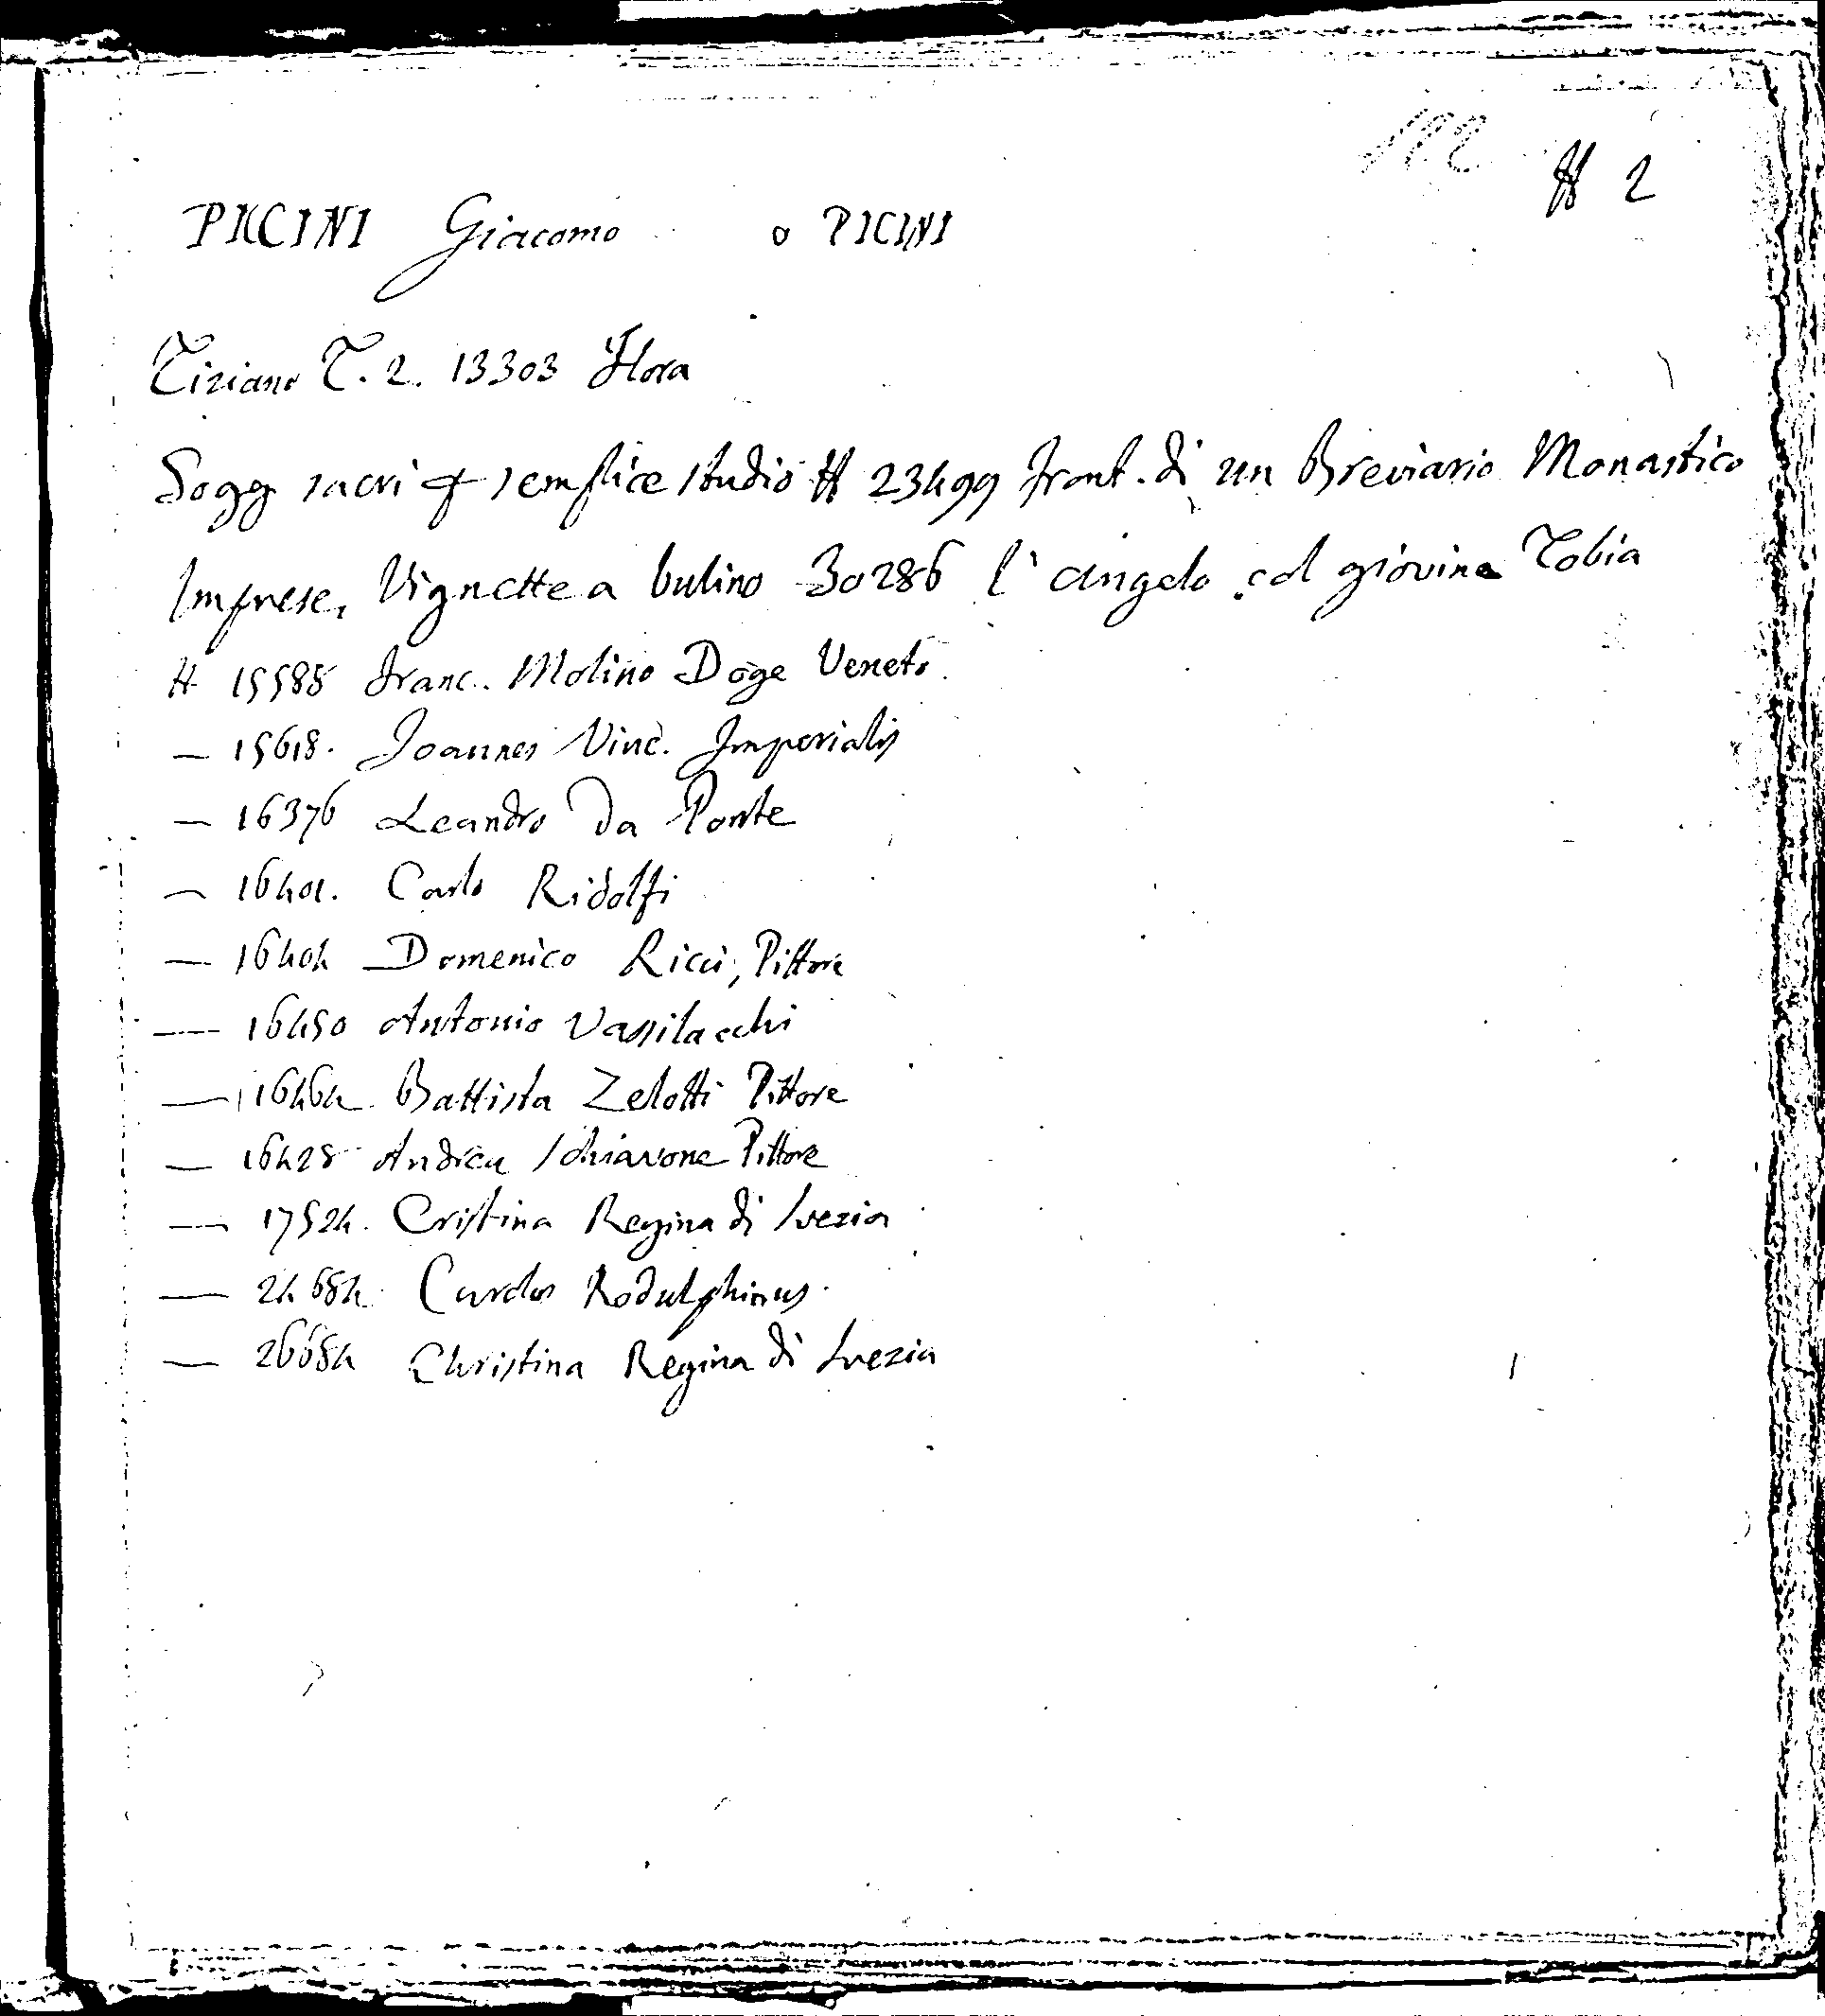 182 H 2
PICINI Giacomo o PICINI
Tiziano T. 2. 13303 Flora
Sogg sacri + semplice studio H 23499 Front. di un Breviario Monastico
Imprese, Vignette a bulino 30286 l'angelo col giovine Tobia
H 15588 Franc. Molino Doge Veneto.
— 15618. Joannes Vinc. Imperialis
— 16376 Leandro da Ponte
— 16401. Carlo Ridolfi
— 16404 Domenico Ricci, Pittore
— 16450 Antonio Vassilacchi
— 16464 Battista Zelotti Pittore
— 16428 Andrea Schiavone Pittore
— 17524. Cristina Regina di Svezia
— 24684 Carolus Rodulphinus.
— 26684 Christina Regina di Svezia